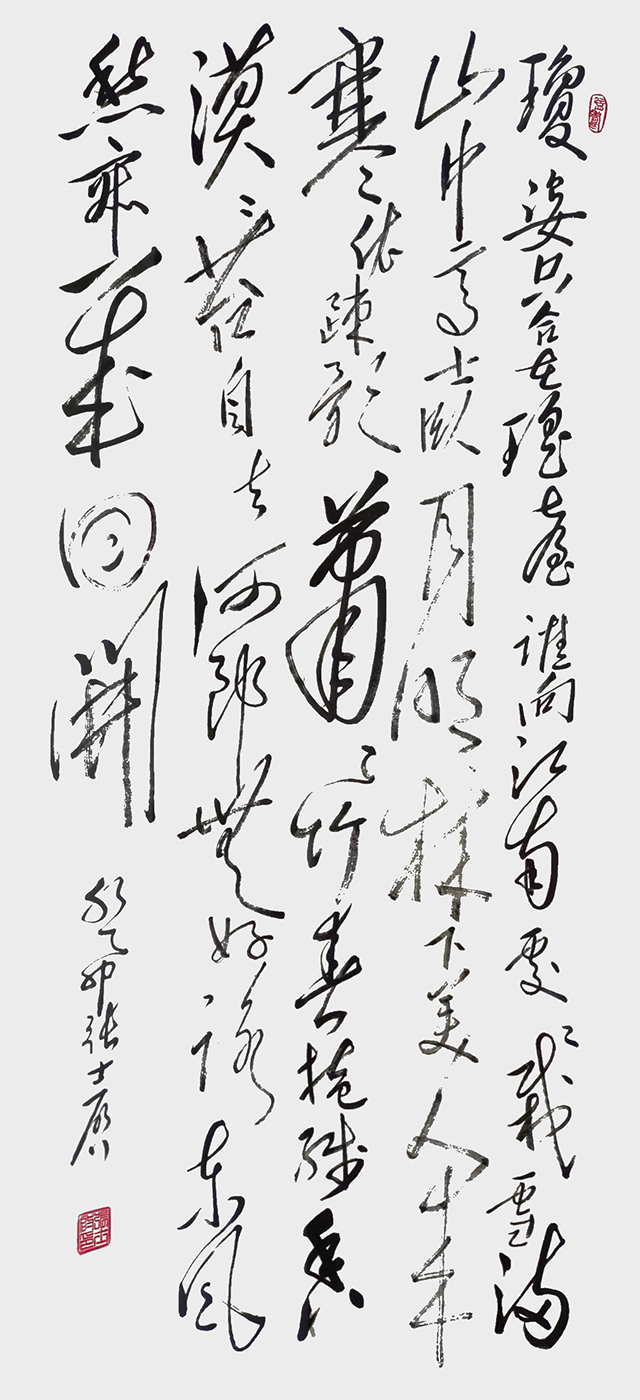 瓊姿只合在瑶臺谁向江南處〻栽雪满
山中高士臥月明林下美人来
寒〻依疎影蕭〻竹春掩残香
漠〻苔自去何郎無好詠东风
愁寂幾回開
癸卯張士